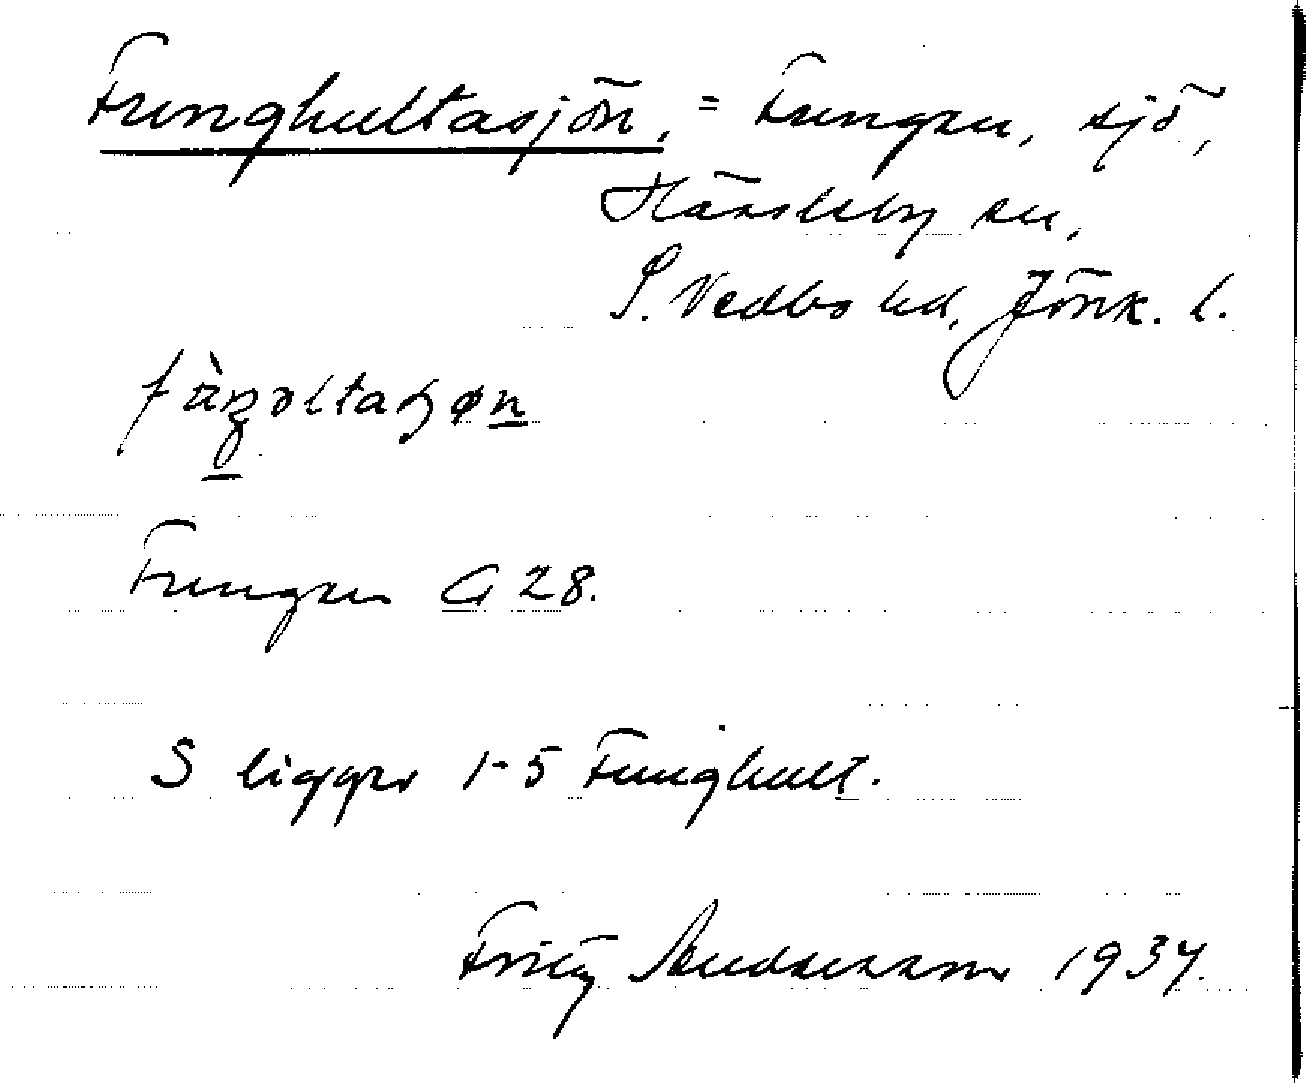 Funghultasjön, = Fungen, sjö,
Hässleby sn,
S. Vedbo hd, Jönk. l.
Fungen G 28.
S ligger 1-5 Funghult.
Fritz Andersson 1934.